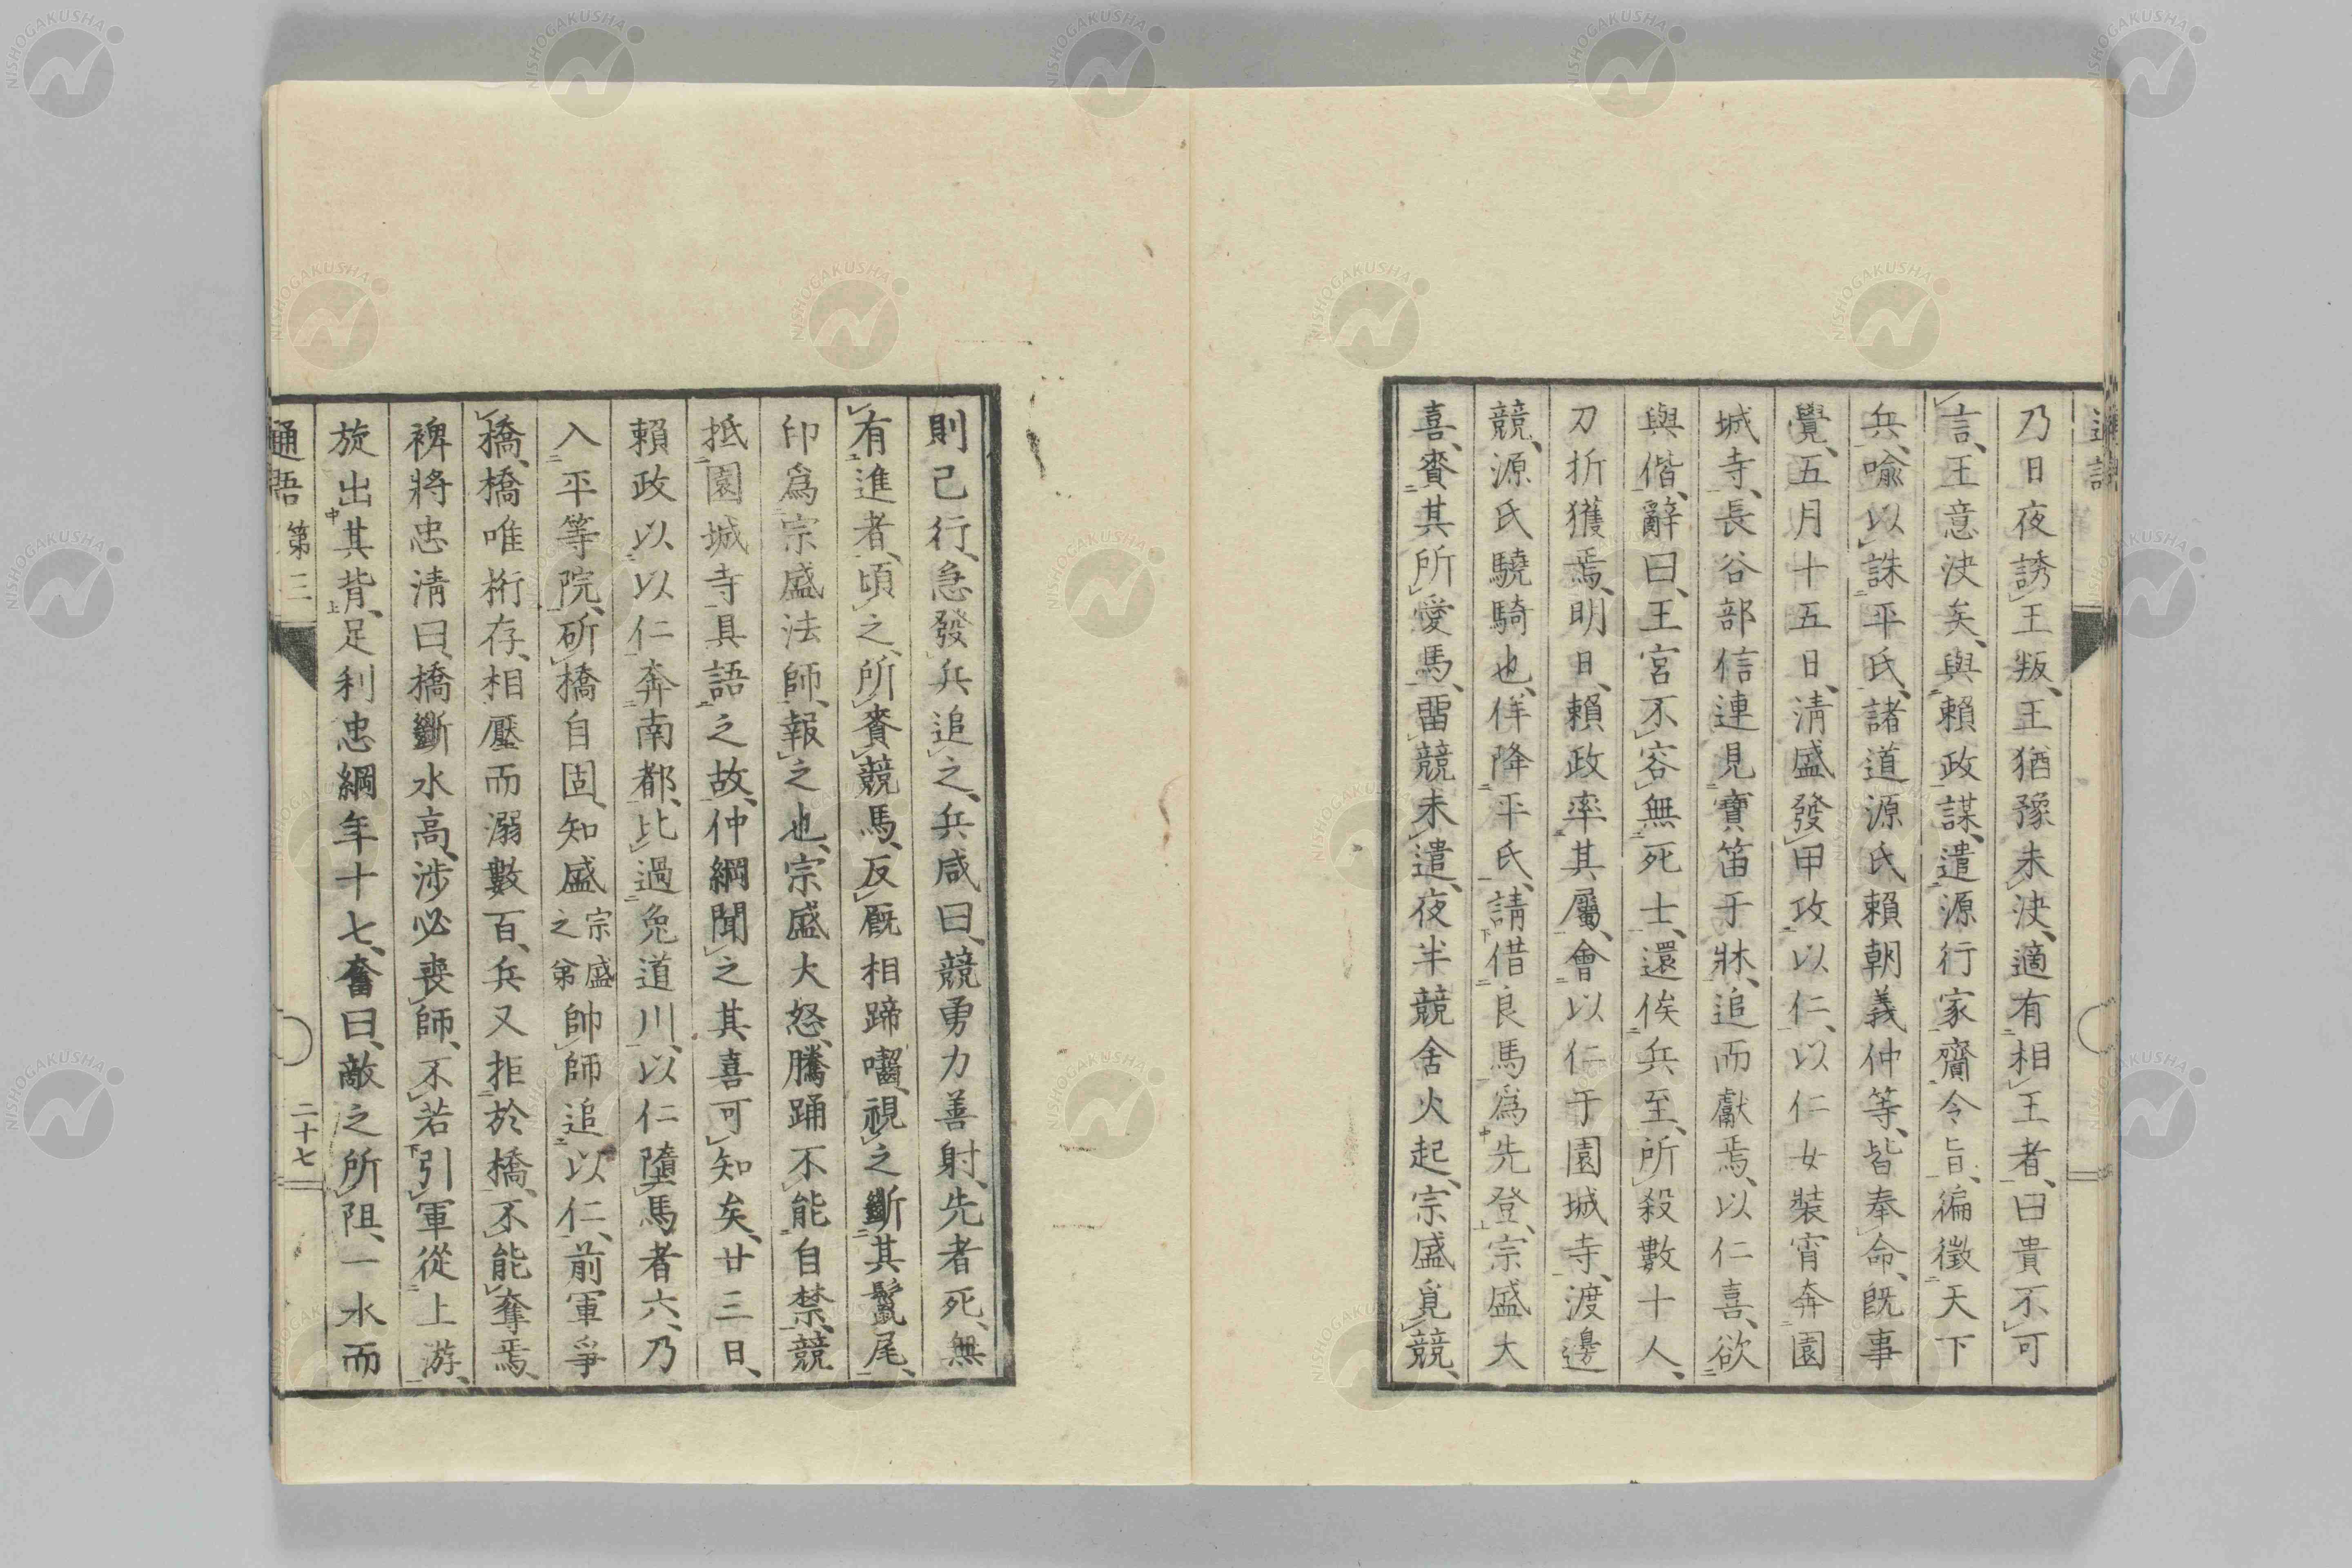 乃日夜誘王叛、王猶豫未決、適有相王者、曰貴不可
言、王意決矣、與賴政謀、遣源行家齎令旨、徧徵天下
兵、喩以誅平氏、諸道源氏賴朝義仲等、皆奉命、既事
覺、五月十五日、淸盛發甲攻以仁、以仁女裝宵奔園
城寺、長谷部信連見寶笛于牀、追而獻焉、以仁喜、欲
與偕、辭曰、王宮不容無死士、還俟兵至、所殺數十人、
刀折獲焉、明日、賴政率其屬、會以仁于園城寺、渡邊
競、源氏驍騎也、佯降平氏、請借良馬爲先登、宗盛大
喜、賚其所愛馬、畱競未遣、夜半競舍火起、宗盛覓競、
則已行、急發兵追之、兵咸曰、競勇力善射、先者死、無
有進者、頃之、所賚競馬、反厩相蹄囓、視之斷其鬣尾、
印爲宗盛法師、報之也、宗盛大怒、騰踊不能自禁、競
抵園城寺具語之故、仲綱聞之其喜可知矣、廿三日、
賴政以以仁奔南都、比過兔道川、以仁墮馬者六、乃
入平等院、斫橋自固、知盛宗盛之弟帥師追以仁、前軍爭
橋、橋唯桁存、相壓而溺數百、兵又拒於橋、不能奪焉、
裨將忠淸曰、橋斷水高、涉必喪師、不若引軍從上游、
旋出其背、足利忠綱年十七、奮曰、敵之所阻、一水而
通語 第三 二十七
NISHOGAKUSHA